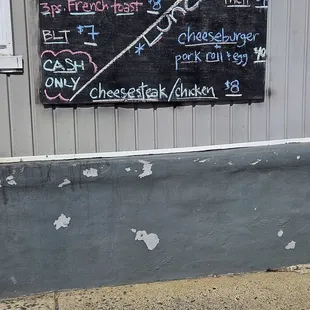 3ps. French toast $8
BLT $7
CASH
ONLY
* LUNCH
cheeseburger
pork roll & egg
$10
cheesesteak/chicken $8